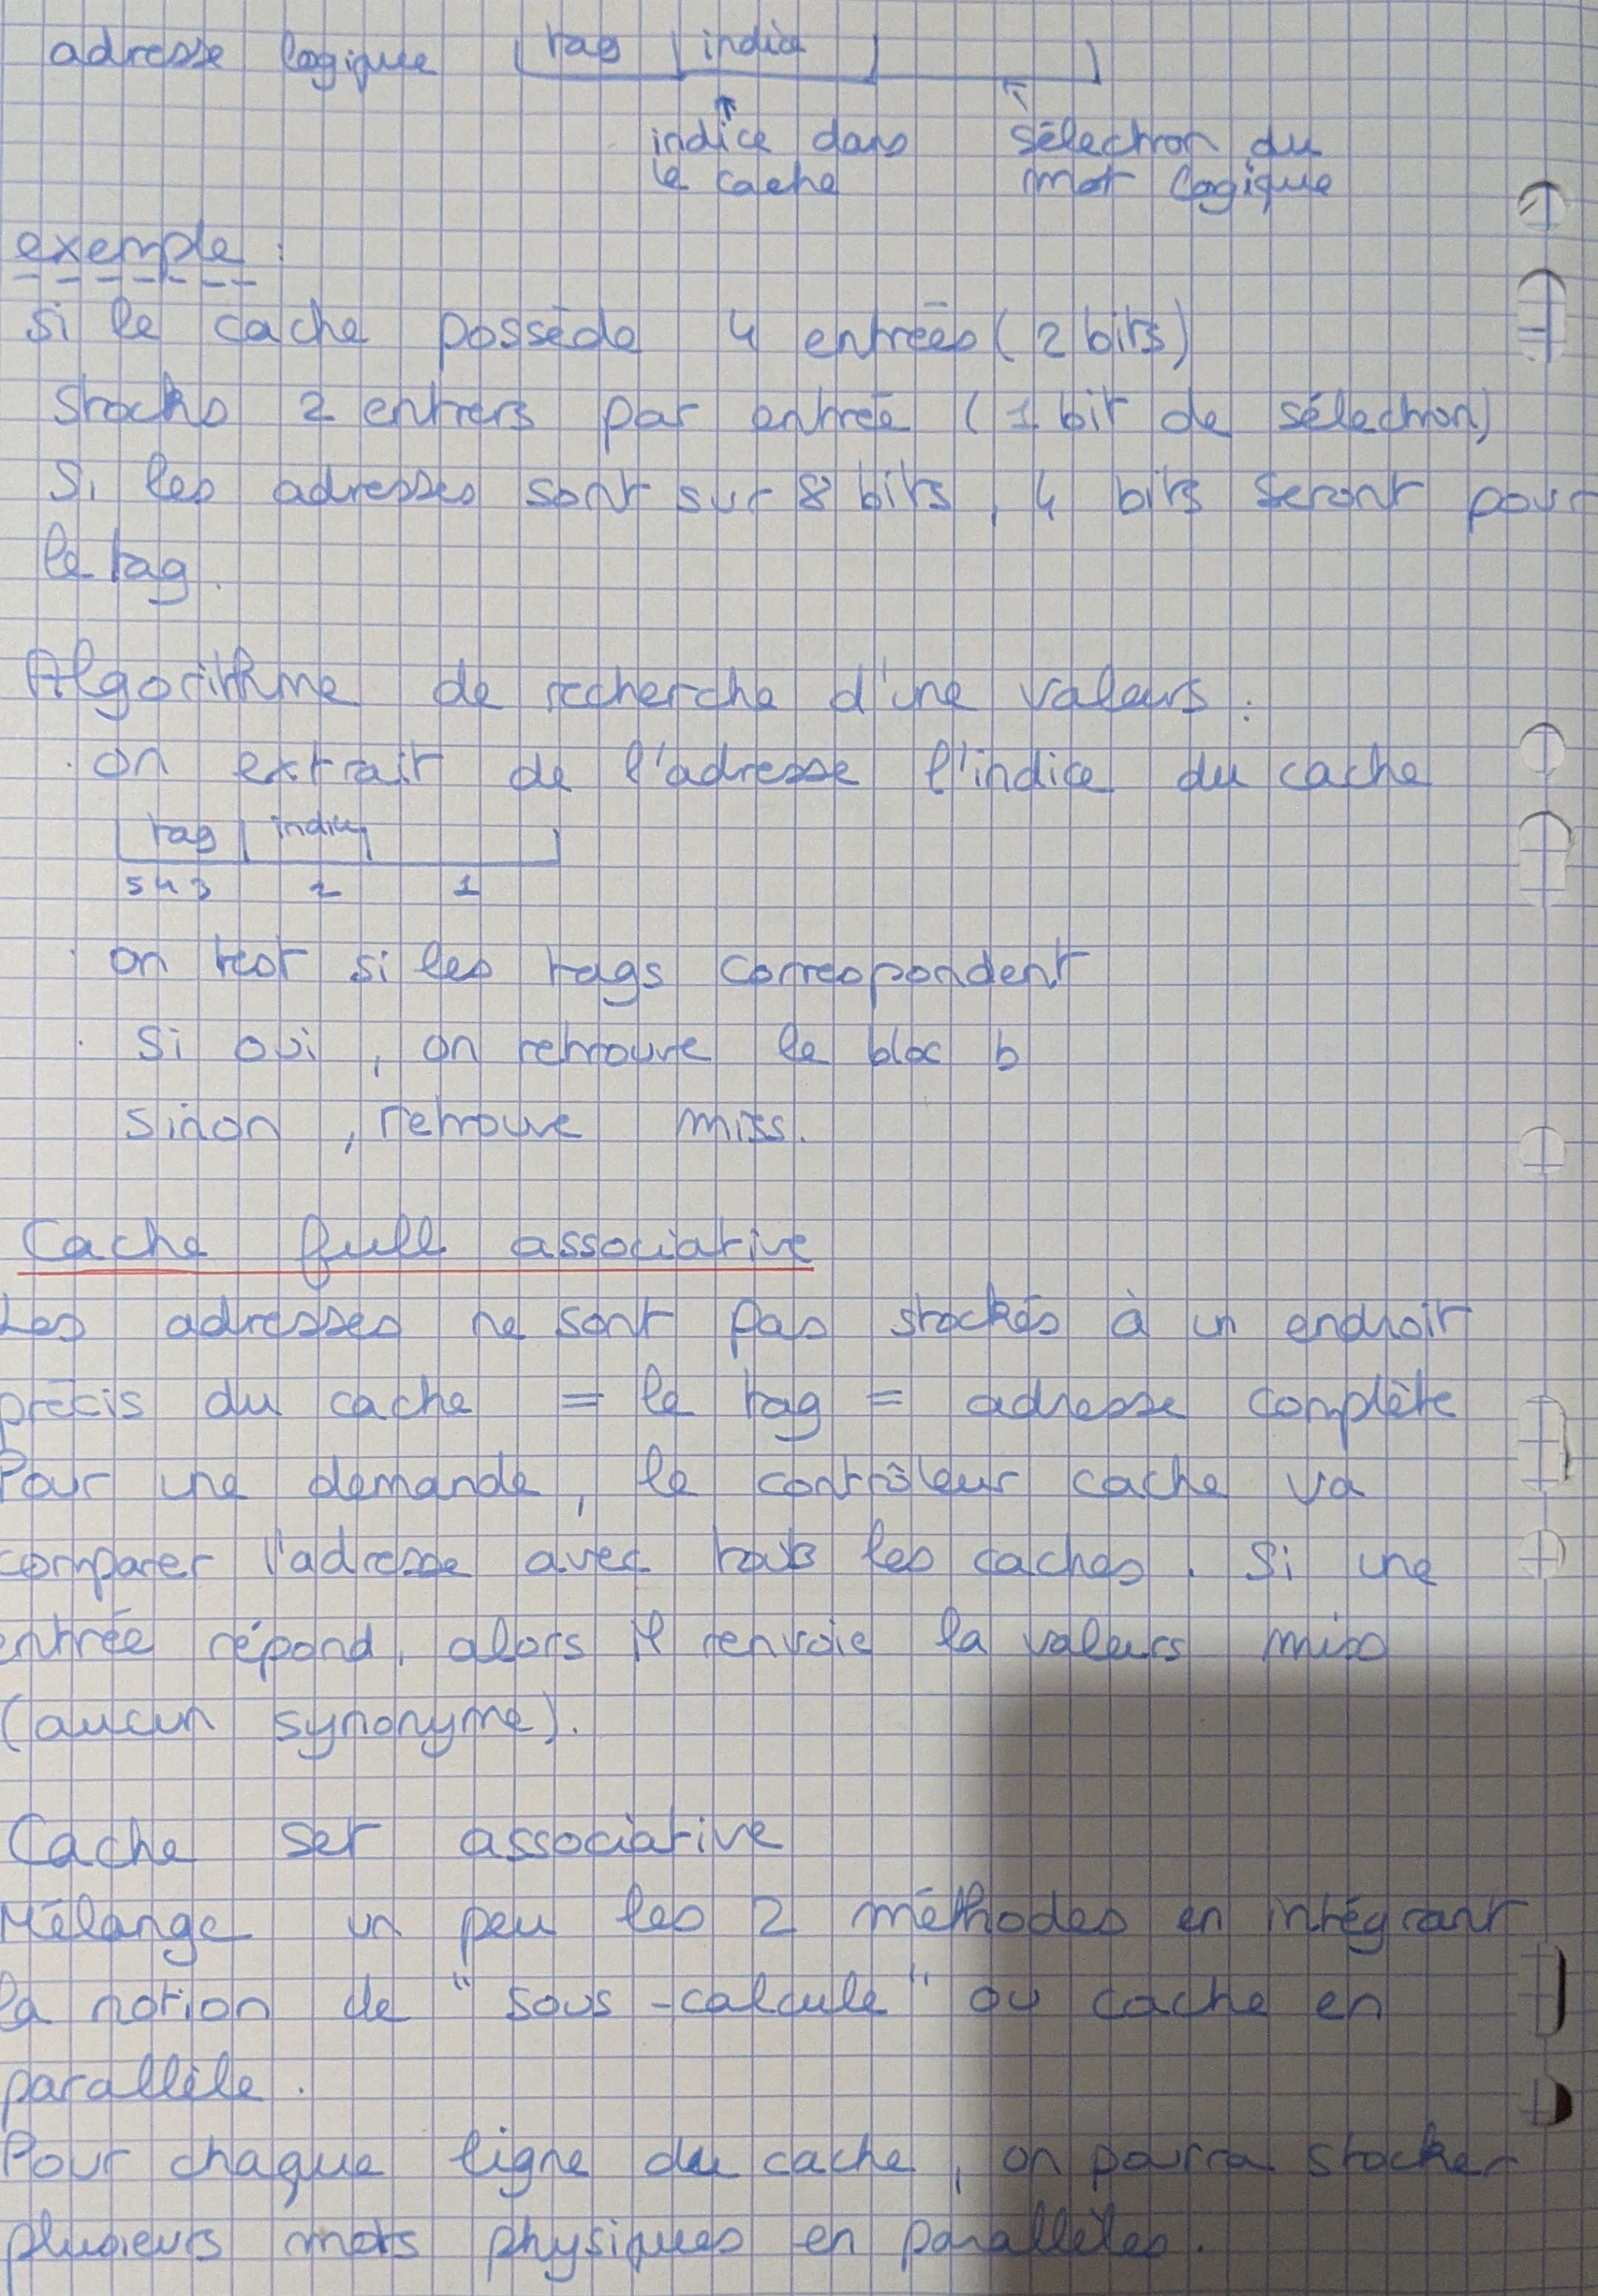 adresse logique tag indice
indice dans sélection du
le cache mot logique
exemple :
Si le cache possède 4 entrées (2 bits)
Stocks 2 entiers par entrée (1 bit de sélection)
Si les adresses sont sur 8 bits, 4 bits seront pour
le tag.
Algorithme de recherche d'une valeurs :
· on extrait de l'adresse l'indice du cache
tag indice
5 4 3 2 1
· on test si les tags correspondent
· Si oui, on retrouve le bloc b
Sinon, retrouve miss.
Cache full associative
Les adresses ne sont pas stockés à un endroit
précis du cache = le tag = adresse complète
Pour une demande, le contrôleur cache va
comparer l'adresse avec les caches. Si une
entrée répond, alors il renvoie la valeurs miss
(aucun synonyme).
Cache set associative
Mélange un peu les 2 méthodes en intégrant
la notion de "sous-calcule" ou cache en
parallèle.
Pour chaque ligne du cache, on pourra stocker
plusieurs mots physiques en parallèles.